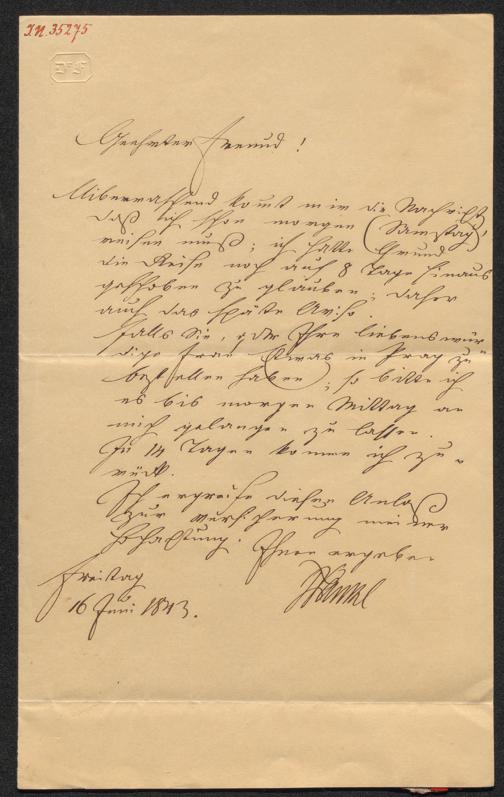 I.N. 35275
Geehrter Freund!
Überraschend kommt mir die Nachricht,
daß ich schon morgen (Samstag)
reisen muß; ich hatte Grund
die Reise noch auf 8 Tage hinaus
geschoben zu glauben; daher
auch das späte Aviso.
Falls Sie, oder Ihre liebenswür
dige Frau Etwas in Prag zu
bestellen haben, so bitte ich
es bis morgen Mittag an
mich gelangen zu lassen.
In 14 Tagen komme ich zu-
rück.
Ich ergreife diesen Anlaß
zur Versicherung meiner
Hochachtung. Ihnen ergeben
Freitag
16 Juni 1843.